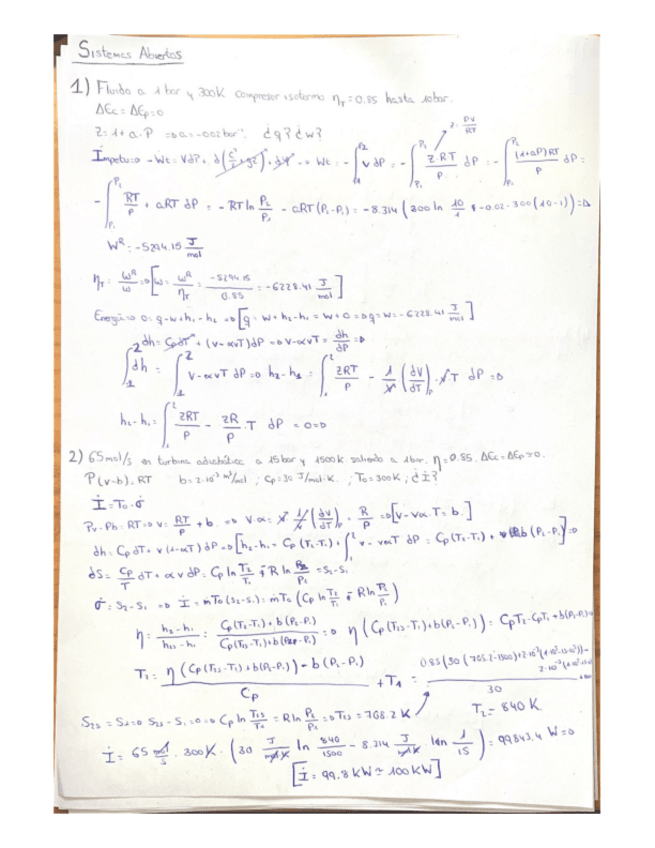 Sistemas Abiertos
1) Fluido a 1 bar y 300K compresor isotermo η_T = 0.85 hasta 10bar.
ΔEc = ΔEp = 0
Z = 1 + a·P => a = -0.02 bar⁻¹ ¿q? ¿w?
Z = PV/RT
Ímpetu => -Wt = VdP + d(c²/2 + gz) + => Wt = -∫ v dP = -∫ Z·RT/P dP = -∫ (1+aP)RT/P dP =
-∫ RT/P + aRT dP = -RT ln P₂/P₁ - aRT(P₂-P₁) = -8.314 (300 ln 10/1 + -0.02·300(10-1)) =>
W^R = -5294.15 J/mol
η_T = W^R/W => [W = W^R/η_T = -5294.15/0.85 = -6228.41 J/mol]
Energía => 0 = q - w + h₁ - h₂ => [q = w + h₂ - h₁ = w + 0 => q = w = -6228.41 J/mol]
dh = CpdT + (v - αvT)dP => v - αvT = dh/dP =>
∫₁² dh = ∫₁² v - αvT dP => h₂ - h₁ = ∫₁² ZRT/P - 1/v (dV/dT)_P · v·T dP =>
h₂ - h₁ = ∫₁² ZRT/P - ZR/P · T dP = 0 =>
2) 65mol/s en turbina adiabática a 15bar y 1500K saliendo a 1bar. η = 0.85. ΔEc = ΔEp = 0.
P(v-b) = RT b = 2·10⁻³ m³/mol ; Cp = 30 J/mol·K ; T₀ = 300K ; ¿İ?
İ = T₀·σ̇
Pv - Pb = RT => v = RT/P + b => V·α = v 1/v (dV/dT)_P = R/P => [v - vα·T = b]
dh = Cp dT + v(1-αT)dP => [h₂ - h₁ = Cp(T₂-T₁) + ∫₁² v - vαT dP = Cp(T₂-T₁) + b(P₂-P₁)] =>
dS = Cp/T dT + αv dP = Cp ln T₂/T₁ - R ln P₂/P₁ = S₂-S₁
σ̇ = S₂ - S₁ => İ = ṁT₀(S₂-S₁) = ṁT₀ (Cp ln T₂/T₁ - R ln P₂/P₁)
η = h₂-h₁/h₂s-h₁ = Cp(T₂-T₁)+b(P₂-P₁)/Cp(T₂s-T₁)+b(P₂-P₁) => η (Cp(T₂s-T₁)+b(P₂-P₁)) = CpT₂-CpT₁+b(P₂-P₁) =>
T₂ = η(Cp(T₂s-T₁)+b(P₂-P₁)) - b(P₂-P₁)/Cp + T₁ =
T₂ = 840 K
S₂s = S₁ => S₂s - S₁ = 0 => Cp ln T₂s/T₁ = R ln P₂/P₁ => T₂s = 708.2 K
İ = 65 mol/s · 300K · (30 J/mol·K ln 840/1500 - 8.314 J/mol·K ln 1/15) = 99843.4 W =>
[İ = 99.8 kW ≃ 100 kW]